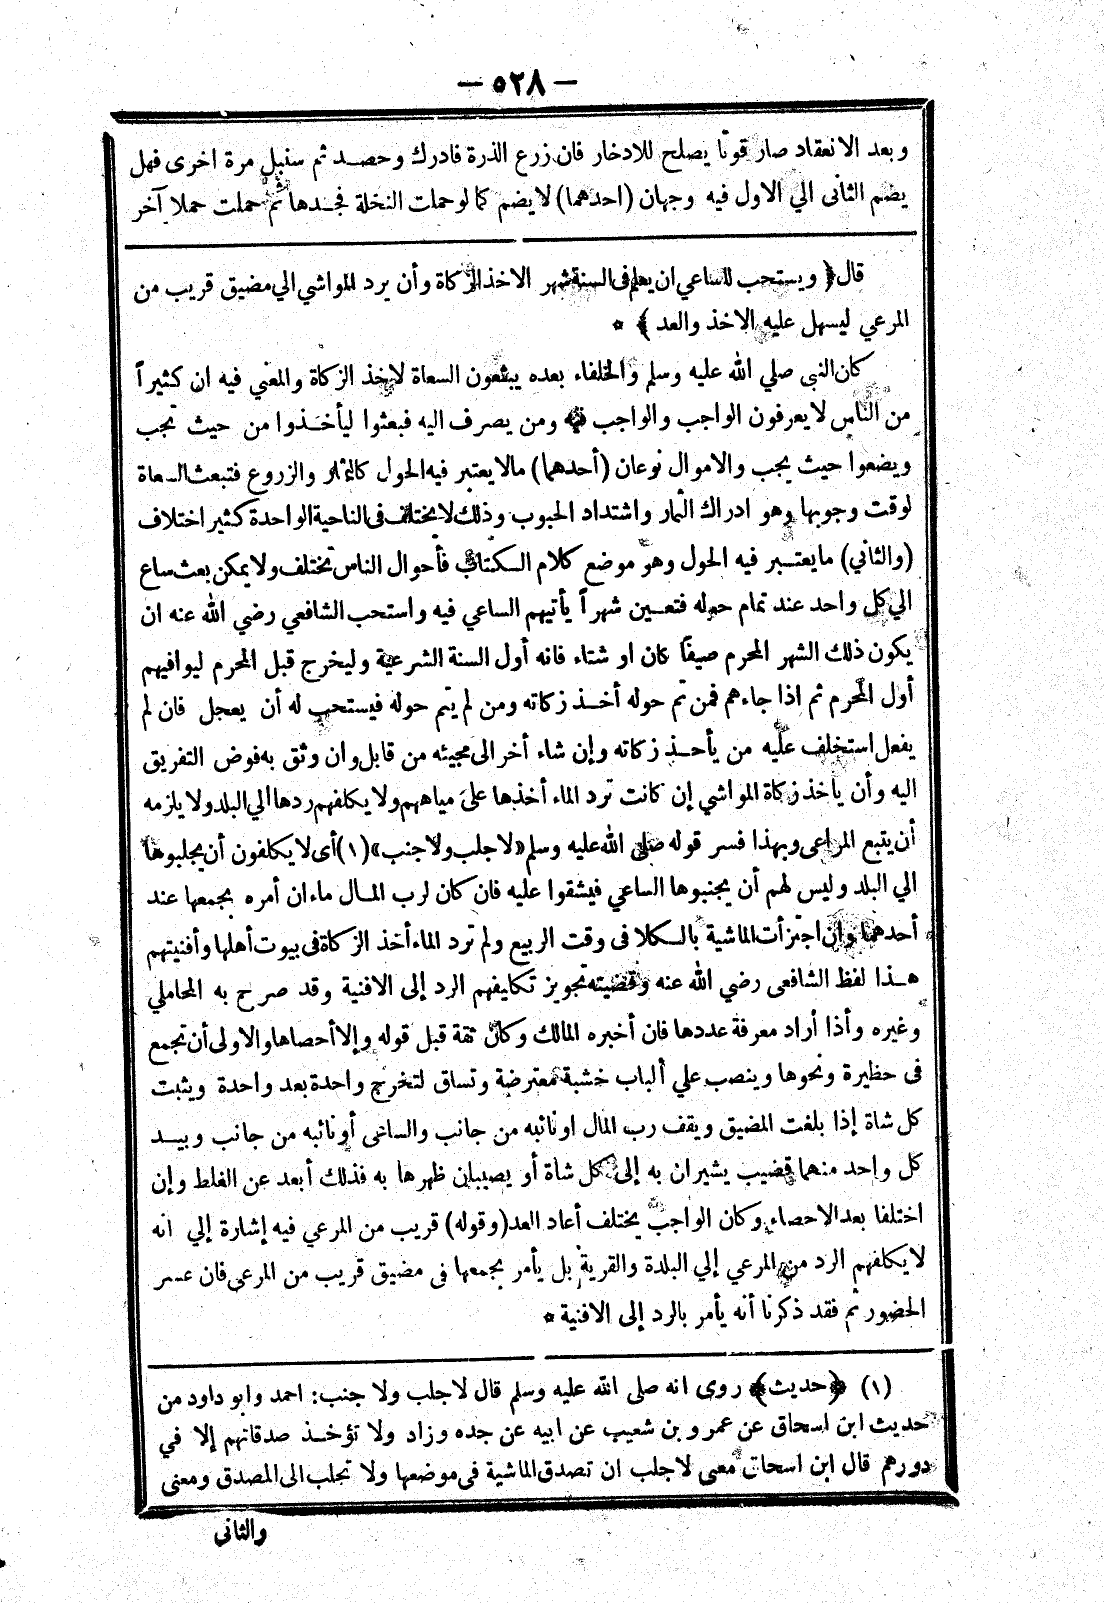 — ٥٢٨ —
وبعد الانعقاد صار قوتا يصلح للادخار فان زرع الذرة فادرك وحصد ثم سنبل مرة اخرى فهل
يضم الثانى الي الاول فيه وجهان (احدهما) لا يضم كما لو حملت النخلة فجدها ثم حملت حملا آخر
قال ﴿ ويستحب للساعي ان يعلم فى السنة شهر الاخذ الزكاة وأن يرد المواشي الي مضيق قريب من
المرعي ليسهل عليه الاخذ والعد ﴾ *
كان النبى صلي الله عليه وسلم والخلفاء بعده يبثعون السعاة لاخذ الزكاة والمعني فيه ان كثيراً
من الناس لا يعرفون الواجب والواجب فيه ومن يصرف اليه فبعثوا ليأخذوا من حيث تجب
ويضعوا حيث يجب والاموال نوعان (أحدهما) مالا يعتبر فيه الحول كالثمار والزروع فتبعث السعاة
لوقت وجوبها وهو ادراك الثمار واشتداد الحبوب وذلك لا يختلف فى الناحية الواحدة كثير اختلاف
(والثاني) ما يعتبر فيه الحول وهو موضع كلام الكتاب فأحوال الناس تختلف ولا يمكن بعث ساع
الي كل واحد عند تمام حوله فتعين شهراً يأتيهم الساعي فيه واستحب الشافعي رضي الله عنه ان
يكون ذلك الشهر المحرم صيفًا كان او شتاء فانه أول السنة الشرعية وليخرج قبل المحرم ليوافيهم
أول المحرم ثم اذا جاءهم فمن تم حوله أخذ زكاته ومن لم يتم حوله فيستحب له أن يعجل فان لم
يفعل استخلف عليه من يأخذ زكاته وإن شاء أخر الى مجيئه من قابل وان وثق به فوض التفريق
اليه وأن يأخذ زكاة المواشي إن كانت ترد الماء أخذها على مياههم ولا يكلفهم ردها الي البلد ولا يلزمه
أن يتبع المراعى وبهذا فسر قوله صلى الله عليه وسلم «لا جلب ولا جنب» (١) أى لا يكلفون أن يجلبوها
الي البلد وليس لهم أن يجنبوها الساعي فيشقوا عليه فان كان لرب المال ماءان أمره بجمعها عند
أحدهما وان اجتزأت الماشية بالكلا فى وقت الربيع ولم ترد الماء أخذ الزكاة فى بيوت أهلها وأفنيتهم
هذا لفظ الشافعى رضي الله عنه وقضيته تجويز تكليفهم الرد إلى الافنية وقد صرح به المحاملي
وغيره وأذا أراد معرفة عددها فان أخبره المالك وكان ثقة قبل قوله وإلا أحصاها والاولى أن تجمع
فى حظيرة ونحوها وينصب علي ألباب خشبة معترضة وتساق لتخرج واحدة بعد واحدة ويثبت
كل شاة إذا بلغت المضيق ويقف رب المال او نائبه من جانب والساعى أو نائبه من جانب وبيد
كل واحد منهما قضيب يشيران به إلى كل شاة أو يصيبان ظهرها به فذلك أبعد عن الغلط وإن
اختلفا بعد الاحصاء وكان الواجب يختلف أعاد العد (وقوله) قريب من المرعي فيه إشارة إلي انه
لا يكلفهم الرد من المرعي إلي البلدة والقرية بل يأمر بجمعها فى مضيق قريب من المرعي فان عسر
الحضور ثم فقد ذكرنا أنه يأمر بالرد إلى الافنية *
(١) ﴿حديث﴾ روى انه صلى الله عليه وسلم قال لا جلب ولا جنب: احمد وابو داود من
حديث ابن اسحاق عن عمرو بن شعيب عن ابيه عن جده وزاد ولا تؤخذ صدقاتهم إلا في
دورهم قال ابن اسحاق معنى لا جلب ان تصدق الماشية فى موضعها ولا تجلب الى المصدق ومعنى
والثانى